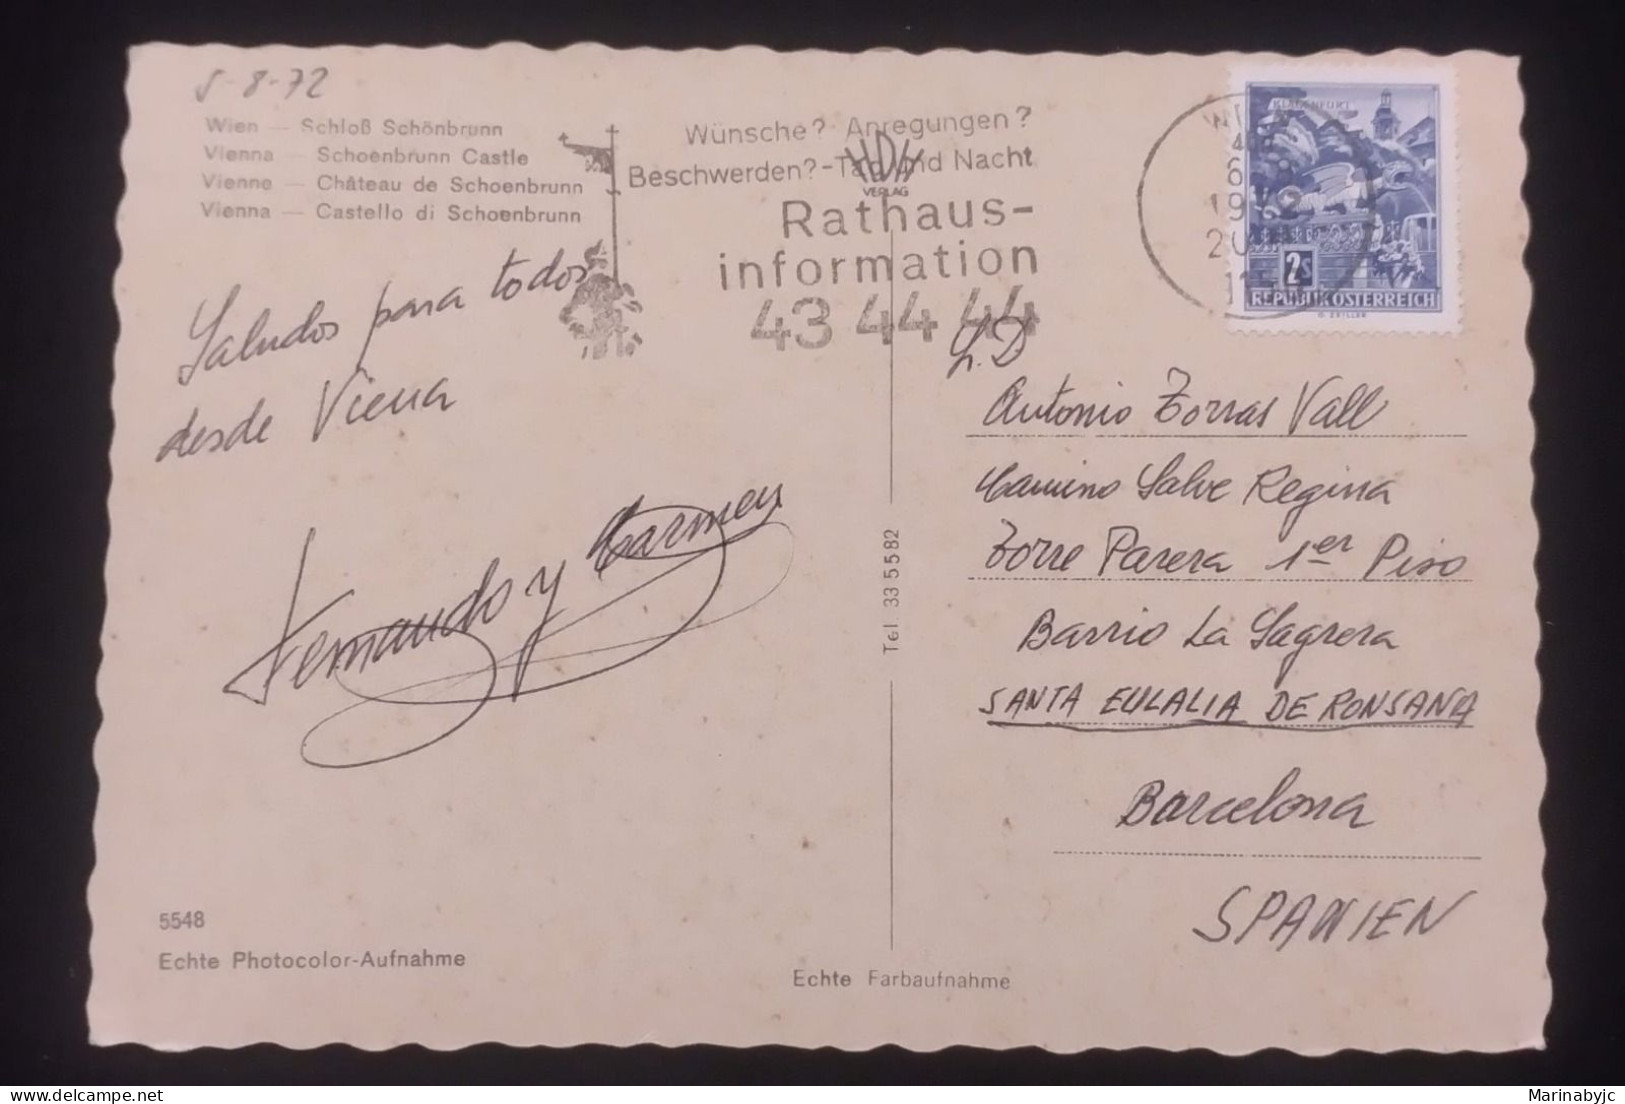 5-8-72
Wien — Schloß Schönbrunn
Vienna — Schoenbrunn Castle
Vienne — Château de Schoenbrunn
Vienna — Castello di Schoenbrunn
Wünsche? Anregungen?
Beschwerden?-Tag und Nacht
Rathaus-
information
43 44 44
VERLAG
WIEN
1972
KLAGENFURT
2s
REPUBLIK ÖSTERREICH
Saludos para todos
desde Viena
Fernando y Carmen
S.D
Antonio Torras Vall
Camino Salve Regina
Torre Parera 1er Piso
Barrio La Sagrera
SANTA EULALIA DE RONSANA
Barcelona
SPANIEN
Tel. 33 55 82
5548
Echte Photocolor-Aufnahme
Echte Farbaufnahme
Marinabyjc